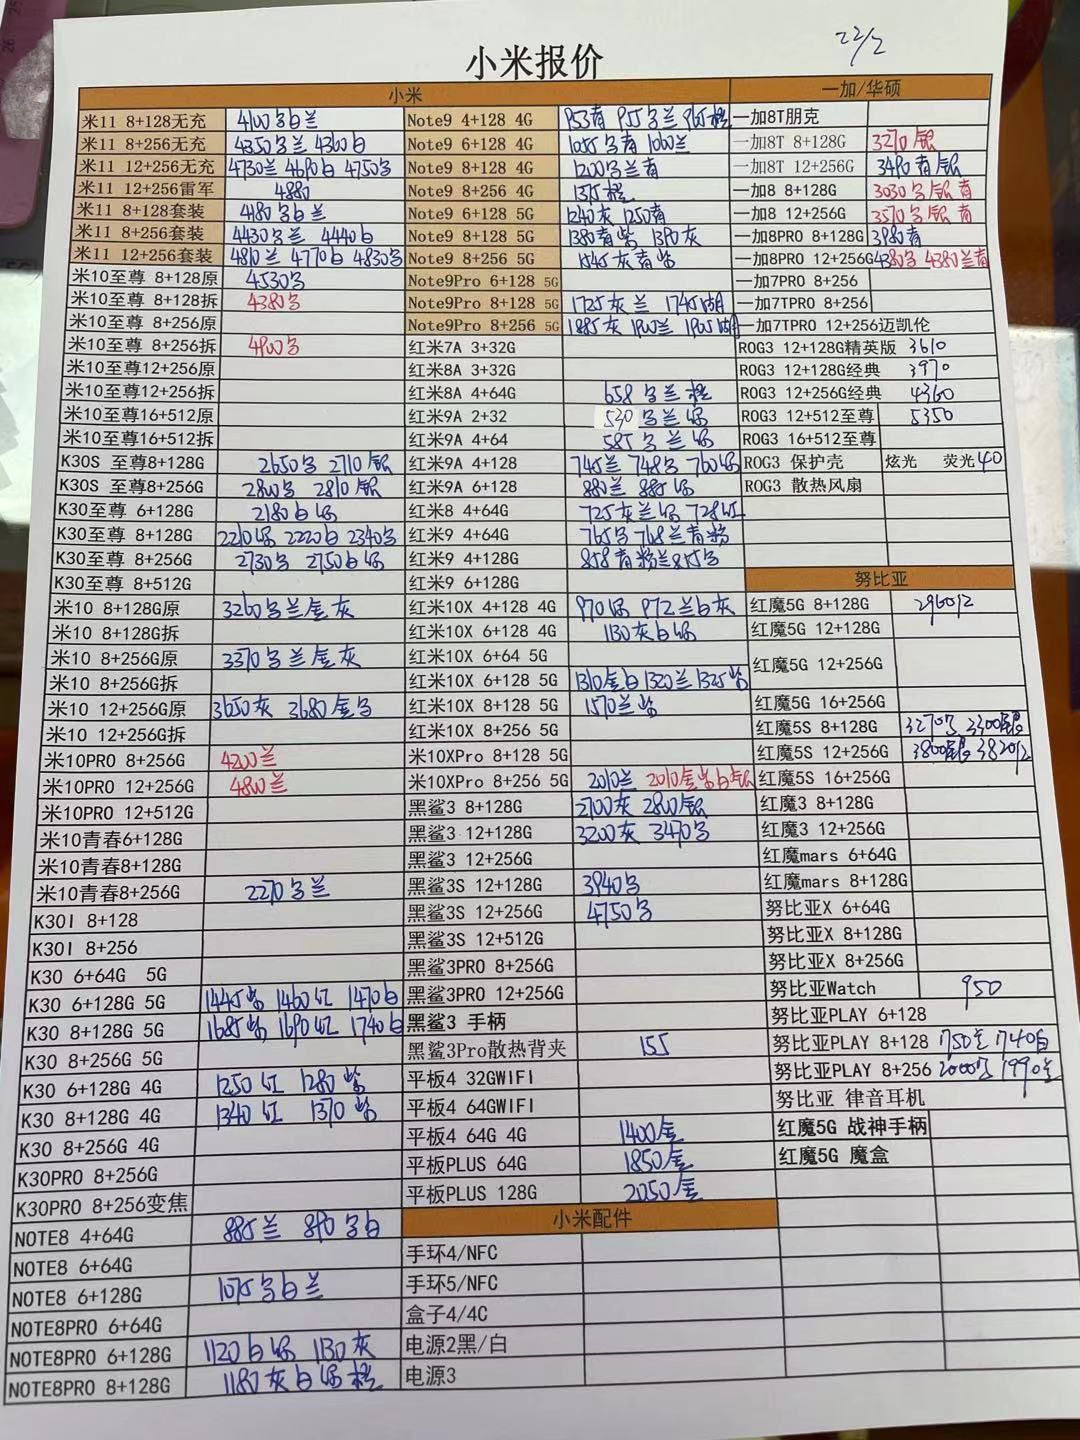 22/2
小米报价
小米
一加/华硕
米11 8+128无充 4100 白兰
米11 8+256无充 4350 兰 4360白
米11 12+256无充 4730兰 4690白 4750
米11 12+256雷军 4880
米11 8+128套装 4180 白兰
米11 8+256套装 4430 兰 4440白
米11 12+256套装 4810兰 4770白 4830
米10至尊 8+128原 4530
米10至尊 8+128拆 4380
米10至尊 8+256原
米10至尊 8+256拆 4900
米10至尊12+256原
米10至尊12+256拆
米10至尊16+512原
米10至尊16+512拆
K30S 至尊8+128G 2650 2710银
K30S 至尊8+256G 2800 2810银
K30至尊 6+128G 2180白绿
K30至尊 8+128G 2210绿 2220白 2340
K30至尊 8+256G 2730 2750白绿
K30至尊 8+512G
米10 8+128G原 3260 兰金灰
米10 8+128G拆
米10 8+256G原 3370 兰金灰
米10 8+256G拆
米10 12+256G原 3650灰 3680金
米10 12+256G拆
米10PRO 8+256G 4200兰
米10PRO 12+256G 4800兰
米10PRO 12+512G
米10青春6+128G
米10青春8+128G
米10青春8+256G 2270 兰
K30I 8+128
K30I 8+256
K30 6+64G 5G
K30 6+128G 5G 1445紫 1460红 1470白
K30 8+128G 5G 1685紫 1690红 1740白
K30 8+256G 5G
K30 6+128G 4G 1250红 1280紫
K30 8+128G 4G 1340红 1370紫
K30 8+256G 4G
K30PRO 8+256G
K30PRO 8+256变焦
NOTE8 4+64G 885兰 890 白
NOTE8 6+64G
NOTE8 6+128G 1075 白兰
NOTE8PRO 6+64G
NOTE8PRO 6+128G 1120白绿 1130灰
NOTE8PRO 8+128G 1180灰白绿橙
Note9 4+128 4G 953青 955 兰 965橙
Note9 6+128 4G 1055 青 1060兰
Note9 8+128 4G 1200 兰青
Note9 8+256 4G 1375橙
Note9 6+128 5G 1240灰 1250青
Note9 8+128 5G 1380青紫 1390灰
Note9 8+256 5G 1545灰青紫
Note9Pro 6+128 5G
Note9Pro 8+128 5G 1725灰兰 1745湖
Note9Pro 8+256 5G 1885灰 1900兰 1905湖
红米7A 3+32G
红米8A 3+32G
红米8A 4+64G 658 兰橙
红米9A 2+32 530 兰绿
红米9A 4+64 585 兰绿
红米9A 4+128 745兰 748 760绿
红米9A 6+128 880兰 885绿
红米8 4+64G 725灰兰绿 728红
红米9 4+64G 765 768兰青粉
红米9 4+128G 858青粉兰855
红米9 6+128G
红米10X 4+128 4G 970绿 972兰白灰
红米10X 6+128 4G 1130灰白绿
红米10X 6+64 5G
红米10X 6+128 5G 1310金白 1320兰 1325紫
红米10X 8+128 5G 1570兰紫
红米10X 8+256 5G
米10XPro 8+128 5G
米10XPro 8+256 5G 2010兰 2010金紫白银
黑鲨3 8+128G 2700灰 2800银
黑鲨3 12+128G 3200灰 3470
黑鲨3 12+256G
黑鲨3S 12+128G 3940
黑鲨3S 12+256G 4750
黑鲨3S 12+512G
黑鲨3PRO 8+256G
黑鲨3PRO 12+256G
黑鲨3 手柄
黑鲨3Pro散热背夹 155
平板4 32GWIFI
平板4 64GWIFI
平板4 64G 4G 1400金
平板PLUS 64G 1850金
平板PLUS 128G 2050金
小米配件
手环4/NFC
手环5/NFC
盒子4/4C
电源2黑/白
电源3
一加8T朋克
一加8T 8+128G 3270银
一加8T 12+256G 3490青银
一加8 8+128G 3030 银青
一加8 12+256G 3570 银青
一加8PRO 8+128G 3980青
一加8PRO 12+256G 4380 4380兰青
一加7PRO 8+256
一加7TPRO 8+256
一加7TPRO 12+256迈凯伦
ROG3 12+128G精英版 3610
ROG3 12+128G经典 3970
ROG3 12+256G经典 4360
ROG3 12+512至尊 5350
ROG3 16+512至尊
ROG3 保护壳 炫光 荧光40
ROG3 散热风扇
努比亚
红魔5G 8+128G 2960
红魔5G 12+128G
红魔5G 12+256G
红魔5G 16+256G
红魔5S 8+128G 3270 3300
红魔5S 12+256G 3800 3820
红魔5S 16+256G
红魔3 8+128G
红魔3 12+256G
红魔mars 6+64G
红魔mars 8+128G
努比亚X 6+64G
努比亚X 8+128G
努比亚X 8+256G
努比亚Watch 950
努比亚PLAY 6+128
努比亚PLAY 8+128 1750兰 1740白
努比亚PLAY 8+256 2000 1990兰
努比亚 律音耳机
红魔5G 战神手柄
红魔5G 魔盒